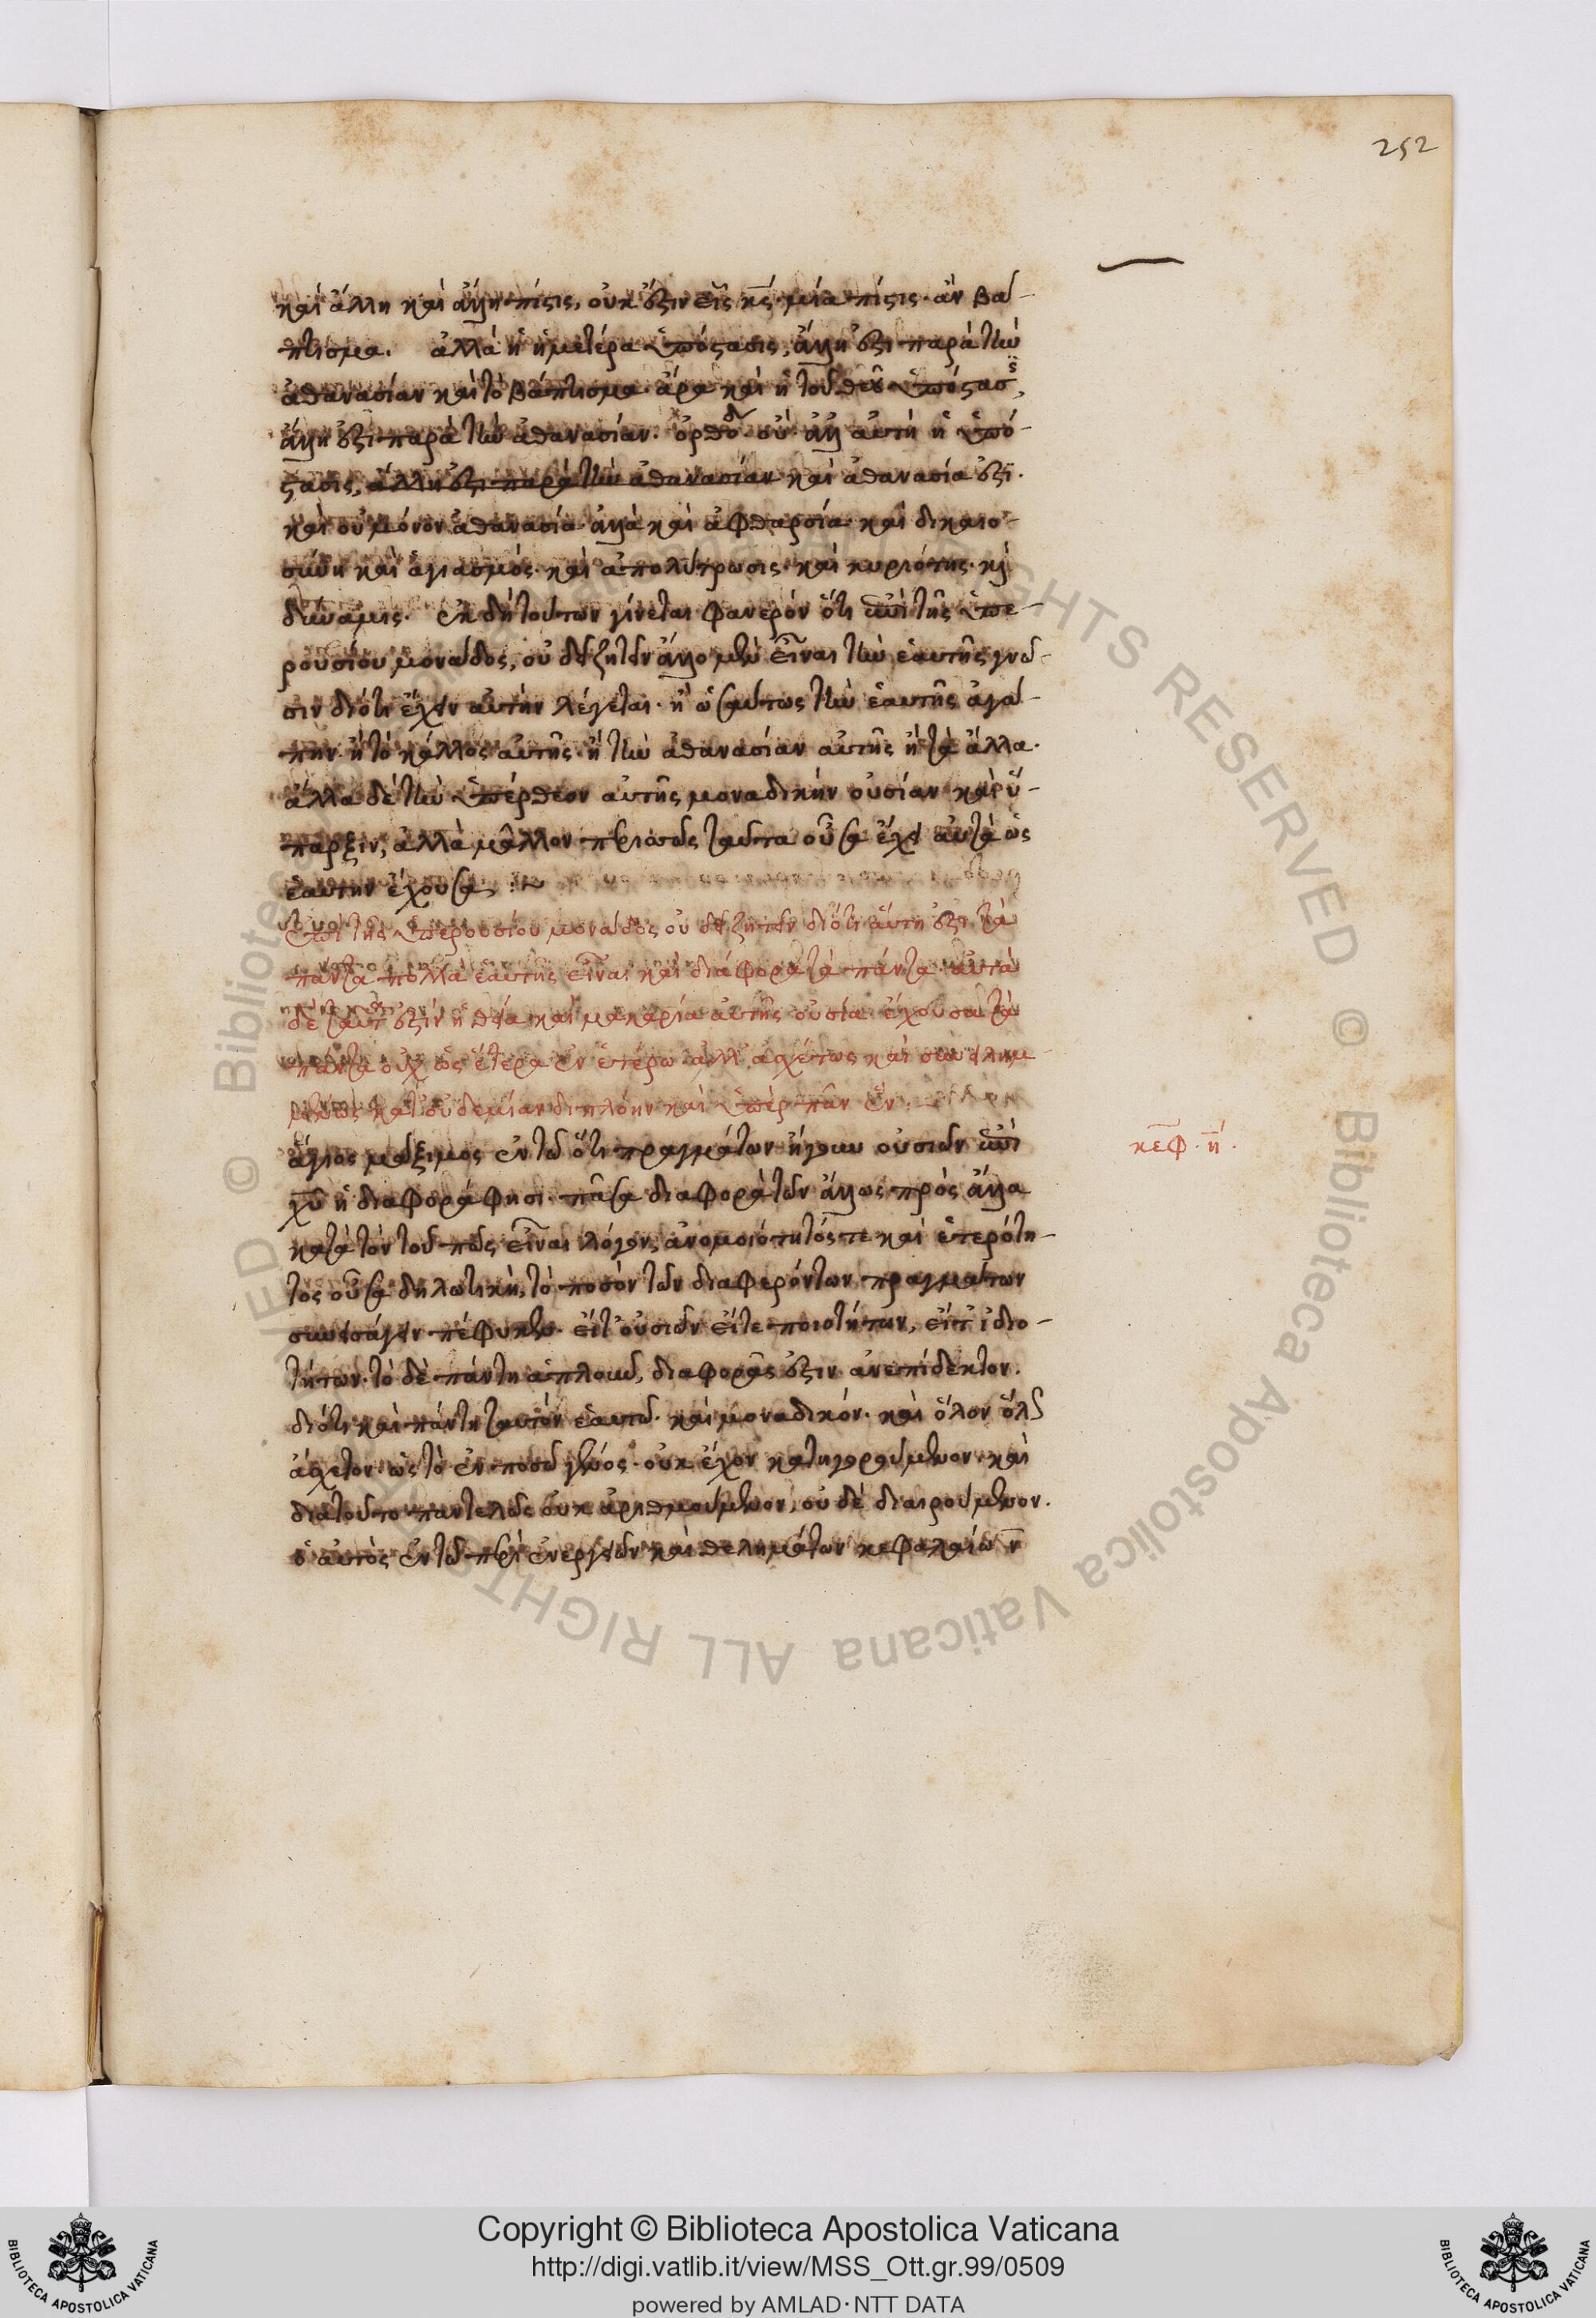 252
καὶ ἄλλη καὶ ἄλλη πίστις, οὐκ ἔστιν εἷς κς̅· μία πίστις· ἓν βά-
πτισμα. ἀλλὰ ἡ ἡμετέρα ὑπόστασις, ἄλλη ἐστὶ παρὰ τὴν
ἀθανασίαν καὶ τὸ βάπτισμα· ἄρα καὶ ἡ τοῦ θεοῦ ὑπόστασις,
ἄλλη ἐστὶ παρὰ τὴν ἀθανασίαν. οὐ· ἀλλ' αὐτὴ ἡ ὑπό-
στασις, ἄλλη ἐστὶ παρὰ τὴν ἀθανασίαν καὶ ἀθανασία ἐστί.
καὶ οὐ μόνον ἀθανασία· ἀλλὰ καὶ ἀφθαρσία· καὶ δικαιο-
σύνη καὶ ἁγιασμός· καὶ ἀπολύτρωσις· καὶ κυριότης· καὶ
δύναμις. ἐκ δὴ τούτων γίνεται φανερόν ὅτι ἐπὶ τῆς ὑπε-
ρουσίου μονάδος, οὐ δεῖ ζητεῖν ἄλλο μὲν εἶναι τὴν ἑαυτῆς γνῶ-
σιν διότι ἔχειν αὐτὴν λέγεται· ἢ ὡσαύτως τὴν ἑαυτῆς ἀγά-
πην· ἢ τὸ κάλλος αὐτῆς· ἢ τὴν ἀθανασίαν αὐτῆς ἢ τὰ ἄλλα·
ἄλλα δὲ τὴν ὑπέρθεον αὐτῆς μοναδικὴν οὐσίαν καὶ ὕ-
παρξιν, ἀλλὰ μᾶλλον ταῦτα οὖσα ἔχει αὐτὰ ὡς
ἑαυτὴν ἔχουσα :~
ἐπὶ τῆς ὑπερουσίου μονάδος οὐ δεῖ ζητεῖν διότι αὕτη ἐστὶ τὰ
πάντα πολλὰ ἑαυτῆς εἶναι καὶ διάφορα τὰ πάντα· αὐτὰ
δὲ ταῦτ' ἐστὶν ἡ θεία καὶ μακαρία αὐτῆς οὐσία· ἔχουσα τὰ
πάντα οὐχ ὡς ἕτερα ἐν ἑτέρῳ ἀλλ' ἀσχέτως καὶ συνειλημ-
μένως κατ' οὐδεμίαν διπλόην καὶ ὑπὲρ πᾶν ἕν :
κεφ· η·
ἅγιος μάξιμος ἐν τῷ ὅτι πραγμάτων ἤγουν οὐσιῶν ἐπὶ
χυ̅ ἡ διαφορά φησι· πᾶσα διαφορὰ τῶν ἄλλως πρὸς ἄλλα
κατὰ τὸν τοῦ πῶς εἶναι λόγον, ἀνομοιότητός τε καὶ ἑτερότη-
τος οὖσα δηλωτική, τὸ ποσὸν τῶν διαφερόντων πραγμάτων
συνεισάγειν πέφυκεν· εἴτ' οὐσιῶν εἴτε ποιοτήτων, εἴτ' ἰδιο-
τήτων· τὸ δὲ πάντη ἁπλοῦν, διαφορᾶς ἐστιν ἀνεπίδεκτον.
διότι καὶ πάντη ταυτὸν ἑαυτῷ· καὶ μοναδικόν· καὶ ὅλον ὅλῳ
ἄσχετον· ὡς τὸ ἐν ποσῷ γένος· οὐκ ἔχον κατηγορούμενον· καὶ
διὰ τοῦτο παντελῶς οὐκ ἀριθμούμενον, οὐδὲ διαιρούμενον.
ὁ αὐτὸς ἐν τῷ περὶ ἐνεργειῶν καὶ θελημάτων κεφαλαίῳ ν̅
Copyright © Biblioteca Apostolica Vaticana
http://digi.vatlib.it/view/MSS_Ott.gr.99/0509
powered by AMLAD·NTT DATA